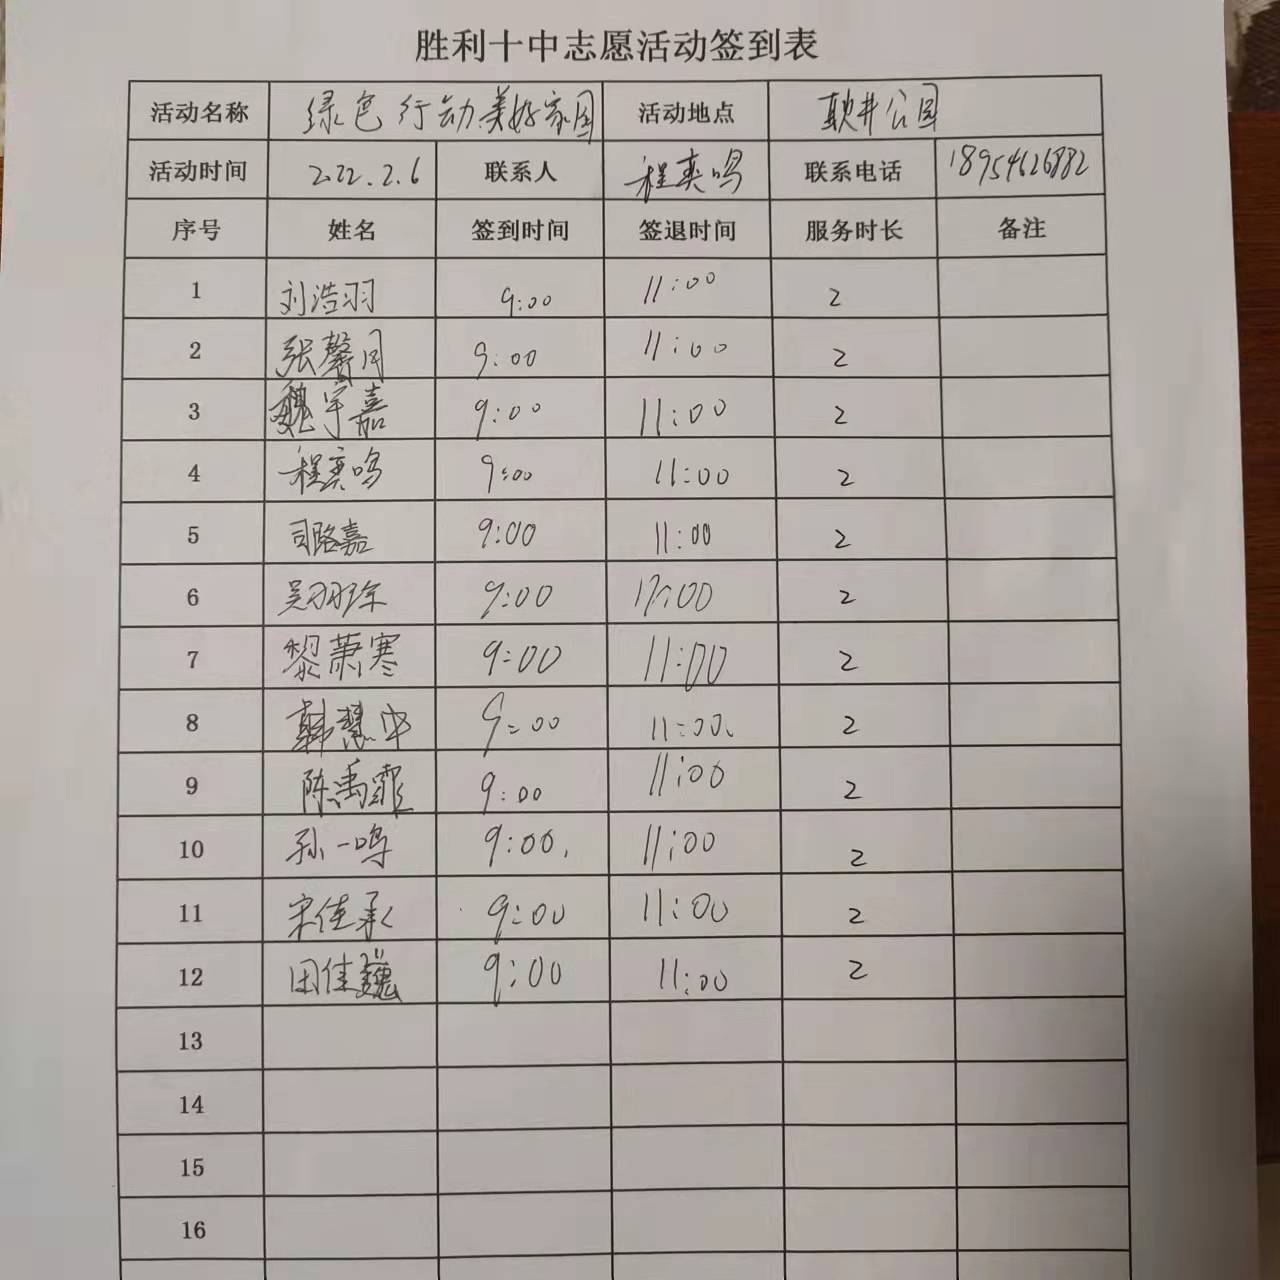 胜利十中志愿活动签到表
活动名称 绿色行动.美好家园 活动地点 耿井公园
活动时间 2022.2.6 联系人 程奕鸣 联系电话 18954626882
序号 姓名 签到时间 签退时间 服务时长 备注
1 刘浩羽 9:00 11:00 2
2 张馨月 9:00 11:00 2
3 魏宇嘉 9:00 11:00 2
4 程奕鸣 9:00 11:00 2
5 司路嘉 9:00 11:00 2
6 吴羽珍 9:00 11:00 2
7 黎萧寒 9:00 11:00 2
8 韩慧中 9:00 11:00. 2
9 陈禹霏 9:00 11:00 2
10 孙一鸣 9:00. 11:00 2
11 宋佳承 9:00 11:00 2
12 田佳巍 9:00 11:00 2
13
14
15
16